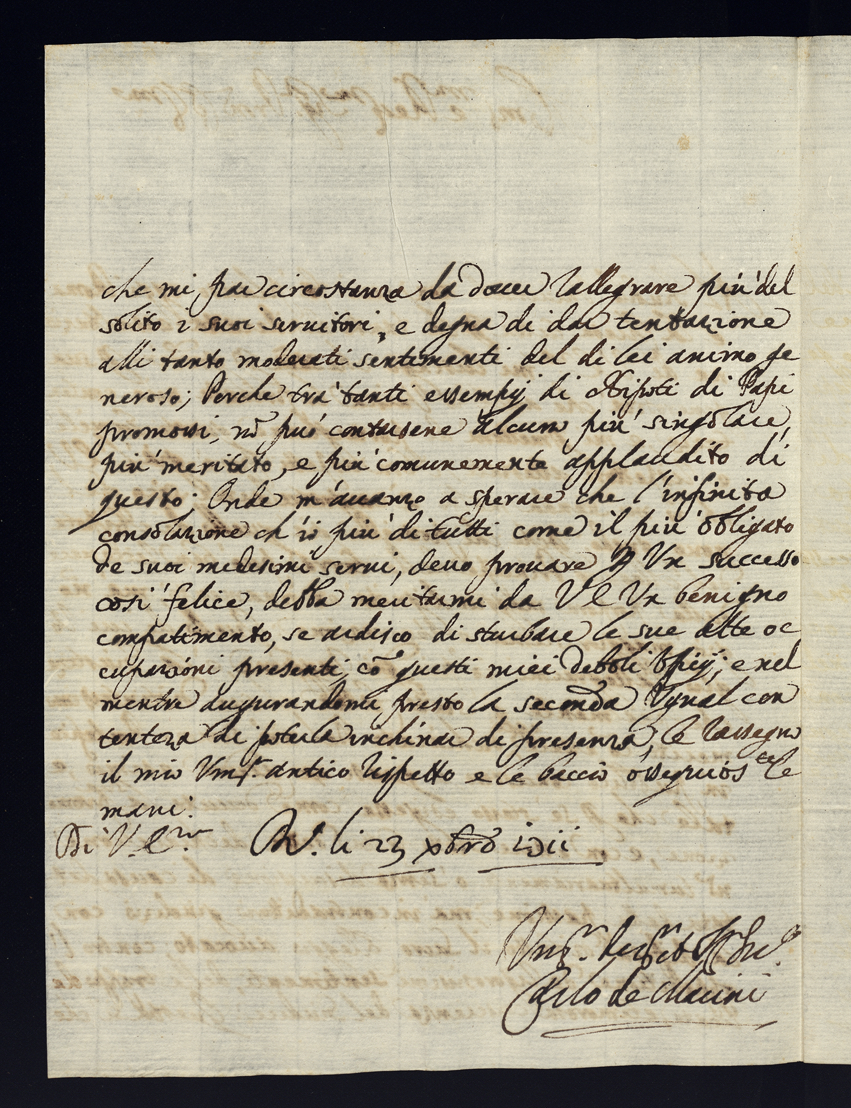 che mi par circostanza da dover rallegrare più del
solito i suoi servitori, e degna di dar tentazione
alli tanto moderati sentimenti del di lei animo ge
neroso; Perche trà tanti essempij di Nipoti di Papi
promossi, nõ può contarsene alcuno più singolare,
più meritato, e più comunemente applaudito di
questo; Onde m'auanzo a sperare che l'infinita
consolazione ch'io più di tutti come il più obligato
de suoi medesimi serui, deuo prouare Un successo
così felice, debba meritarmi da V E Un benigno
compatimento, se ardisco di sturbare le sue alte oc
cupazioni presenti cõ questi miei deboli Offizij; e nel
mentre augurandomi presto la seconda Ugual con
tentezza di poterla inchinar di presenza, le rassegno
il mio Umᵐᵒ. antico rispetto e le baccio osseguiosᵗᵉ le
mani:
Di V. E.ᶻᵃ li 23 Xbrõ 1711
Carlo de Marini